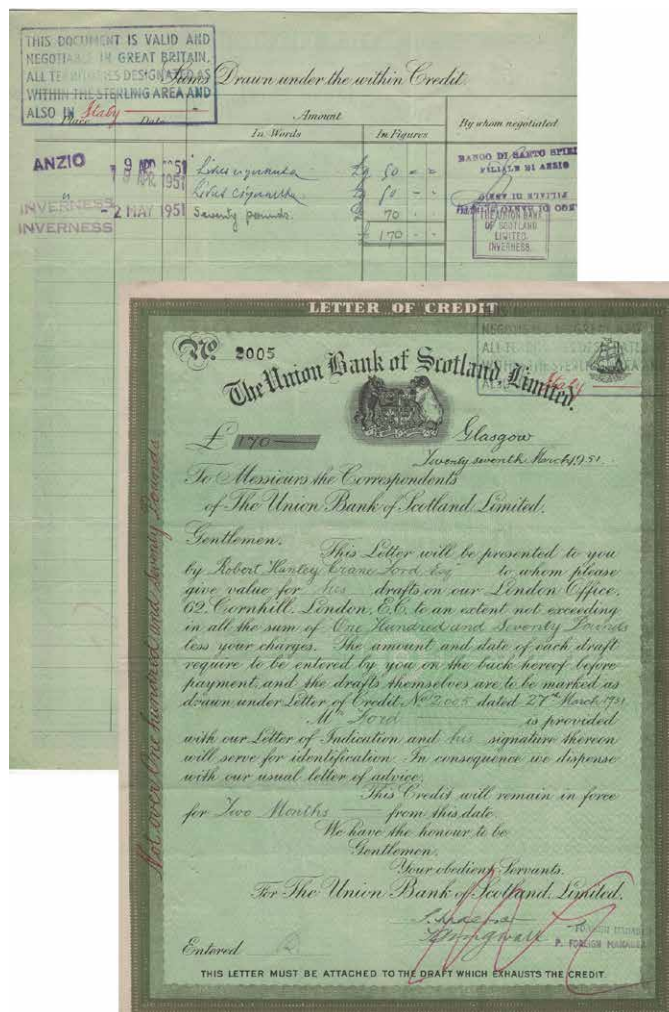 THIS DOCUMENT IS VALID AND
NEGOTIABLE IN GREAT BRITAIN,
ALL TERRITORIES DESIGNATED AS
WITHIN THE STERLING AREA AND
ALSO IN Italy
Items Drawn under the within Credit.
Place Date Amount By whom negotiated
In Words In Figures
ANZIO 9 APR 1951 £ 50 - -
BANCO DI SANTO SPIRI
FILIALE DI ANZIO
" 9 APR 1951 £ 50 - -
FILIALE DI ANZIO
INVERNESS - 2 MAY 1951 Seventy pounds. £ 70 - -
INVERNESS
£ 170 - -
THE UNION BANK
OF SCOTLAND
LIMITED.
INVERNESS.
LETTER OF CREDIT
ALSO Italy
No. 2005
The Union Bank of Scotland Limited.
£ 170 Glasgow
Twenty seventh March 1951.
To Messieurs the Correspondents
of The Union Bank of Scotland Limited.
Gentlemen.
This Letter will be presented to you
by Robert Hanley Crane Ford Esq to whom please
give value for his drafts on our London Office,
62, Cornhill, London, E.C. to an extent not exceeding
in all the sum of One Hundred and Seventy Pounds
less your charges. The amount and date of each draft
require to be entered by you on the back hereof before
payment, and the drafts themselves are to be marked as
drawn under Letter of Credit No 2005 dated 27th March 1951
Mr Ford is provided
with our Letter of Indication and his signature thereon
will serve for identification. In consequence we dispense
with our usual letter of advice.
This Credit will remain in force
for Two Months from this date.
We have the honour to be
Gentlemen,
Your obedient Servants.
For The Union Bank of Scotland Limited,
P. FOREIGN MANAGER
Entered
THIS LETTER MUST BE ATTACHED TO THE DRAFT WHICH EXHAUSTS THE CREDIT.
Not over One hundred and seventy Pounds